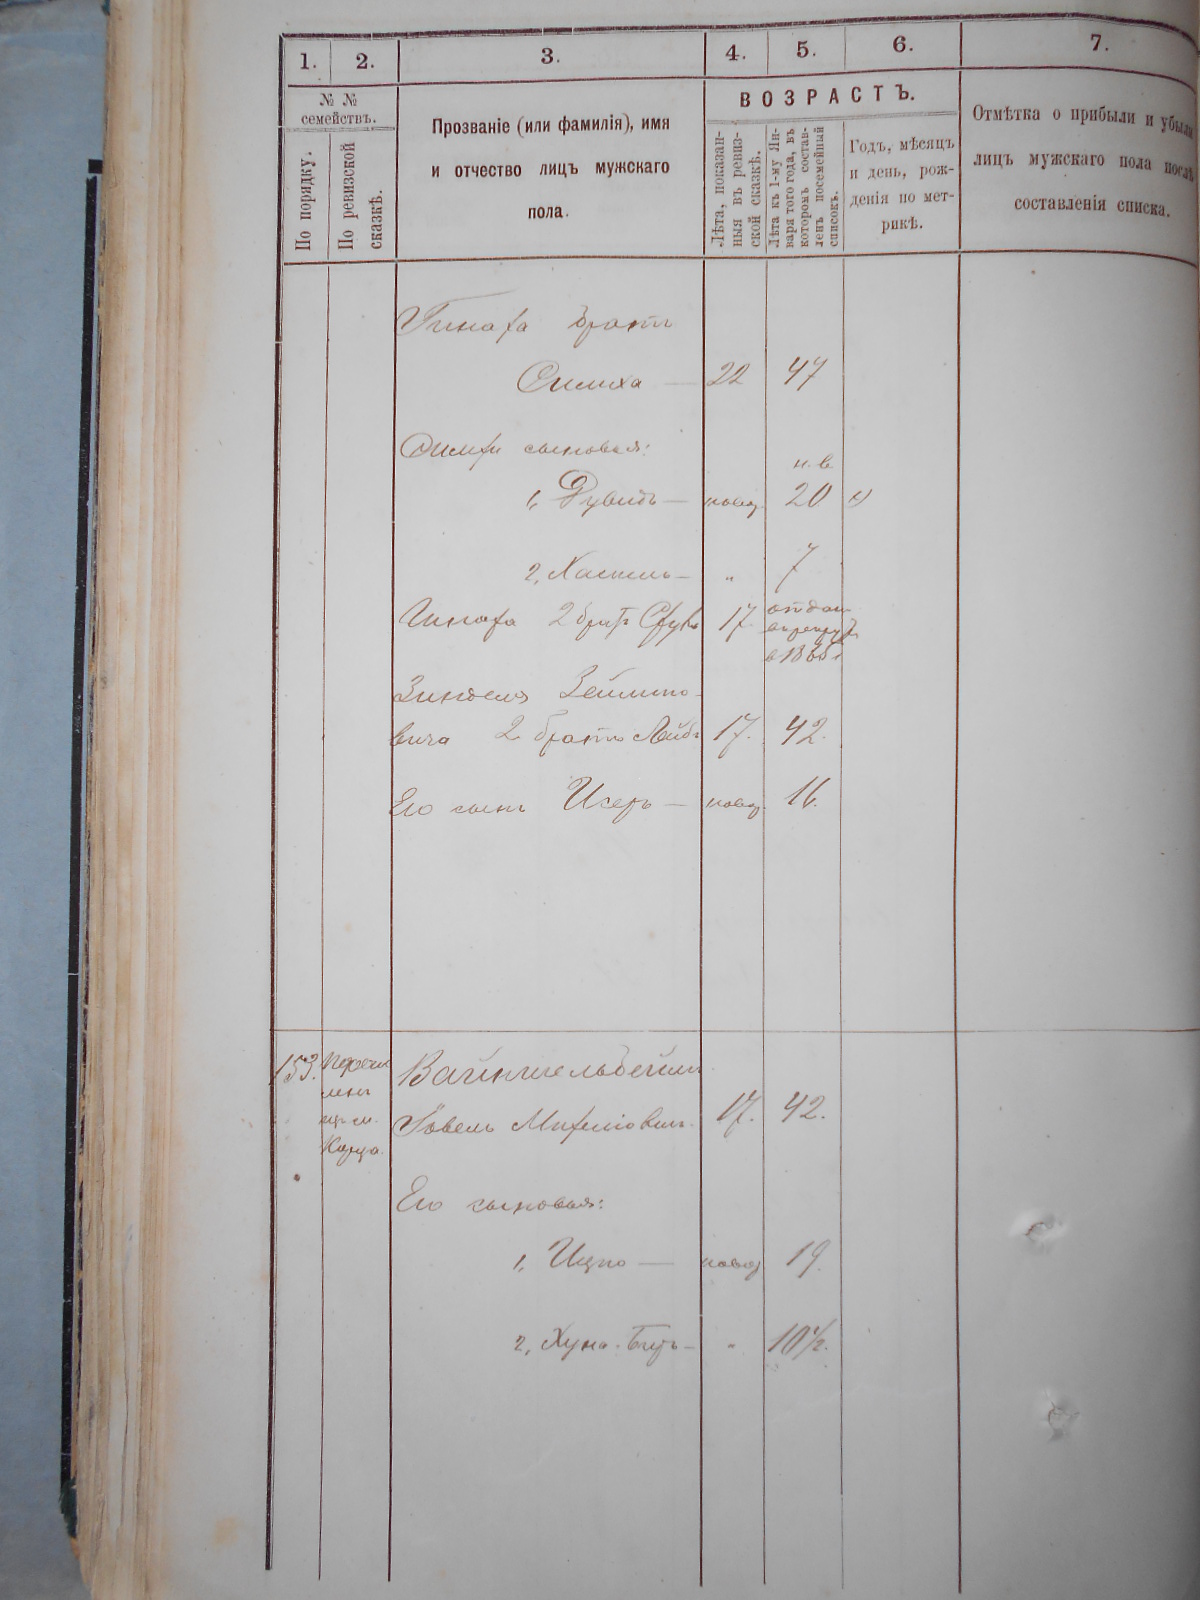 1. 2. 3. 4. 5. 6. 7.
№ №
семействъ.
По порядку.
По ревизской
сказкѣ.
Прозваніе (или фамилія), имя
и отчество лицъ мужскаго
пола.
ВОЗРАСТЪ.
Лѣта, показан-
ныя въ ревиз-
ской сказкѣ.
Лѣта къ 1-му Ян-
варя того года, въ
которомъ состав-
ленъ посемейный
списокъ.
Годъ, мѣсяцъ
и день, рож-
денія по мет-
рикѣ.
Отмѣтка о прибыли и убыли
лицъ мужскаго пола послѣ
составленія списка.
братъ
Симха — 22 47
сыновья:
н. в.
1, Дувидъ — новор. 20
2, Хаскель — „ 7
2 братъ 17.
отдан
в рекрут
в 1865 г
Зинделя
вича 2 братъ Лейб 17. 42.
Его сынъ Исеръ — новор. 16.
153.
Вайншельбеймъ
17. 42.
Его сыновья:
1, Ицко — новор 19.
2, Хуна-Беръ — „ 10 1/2.